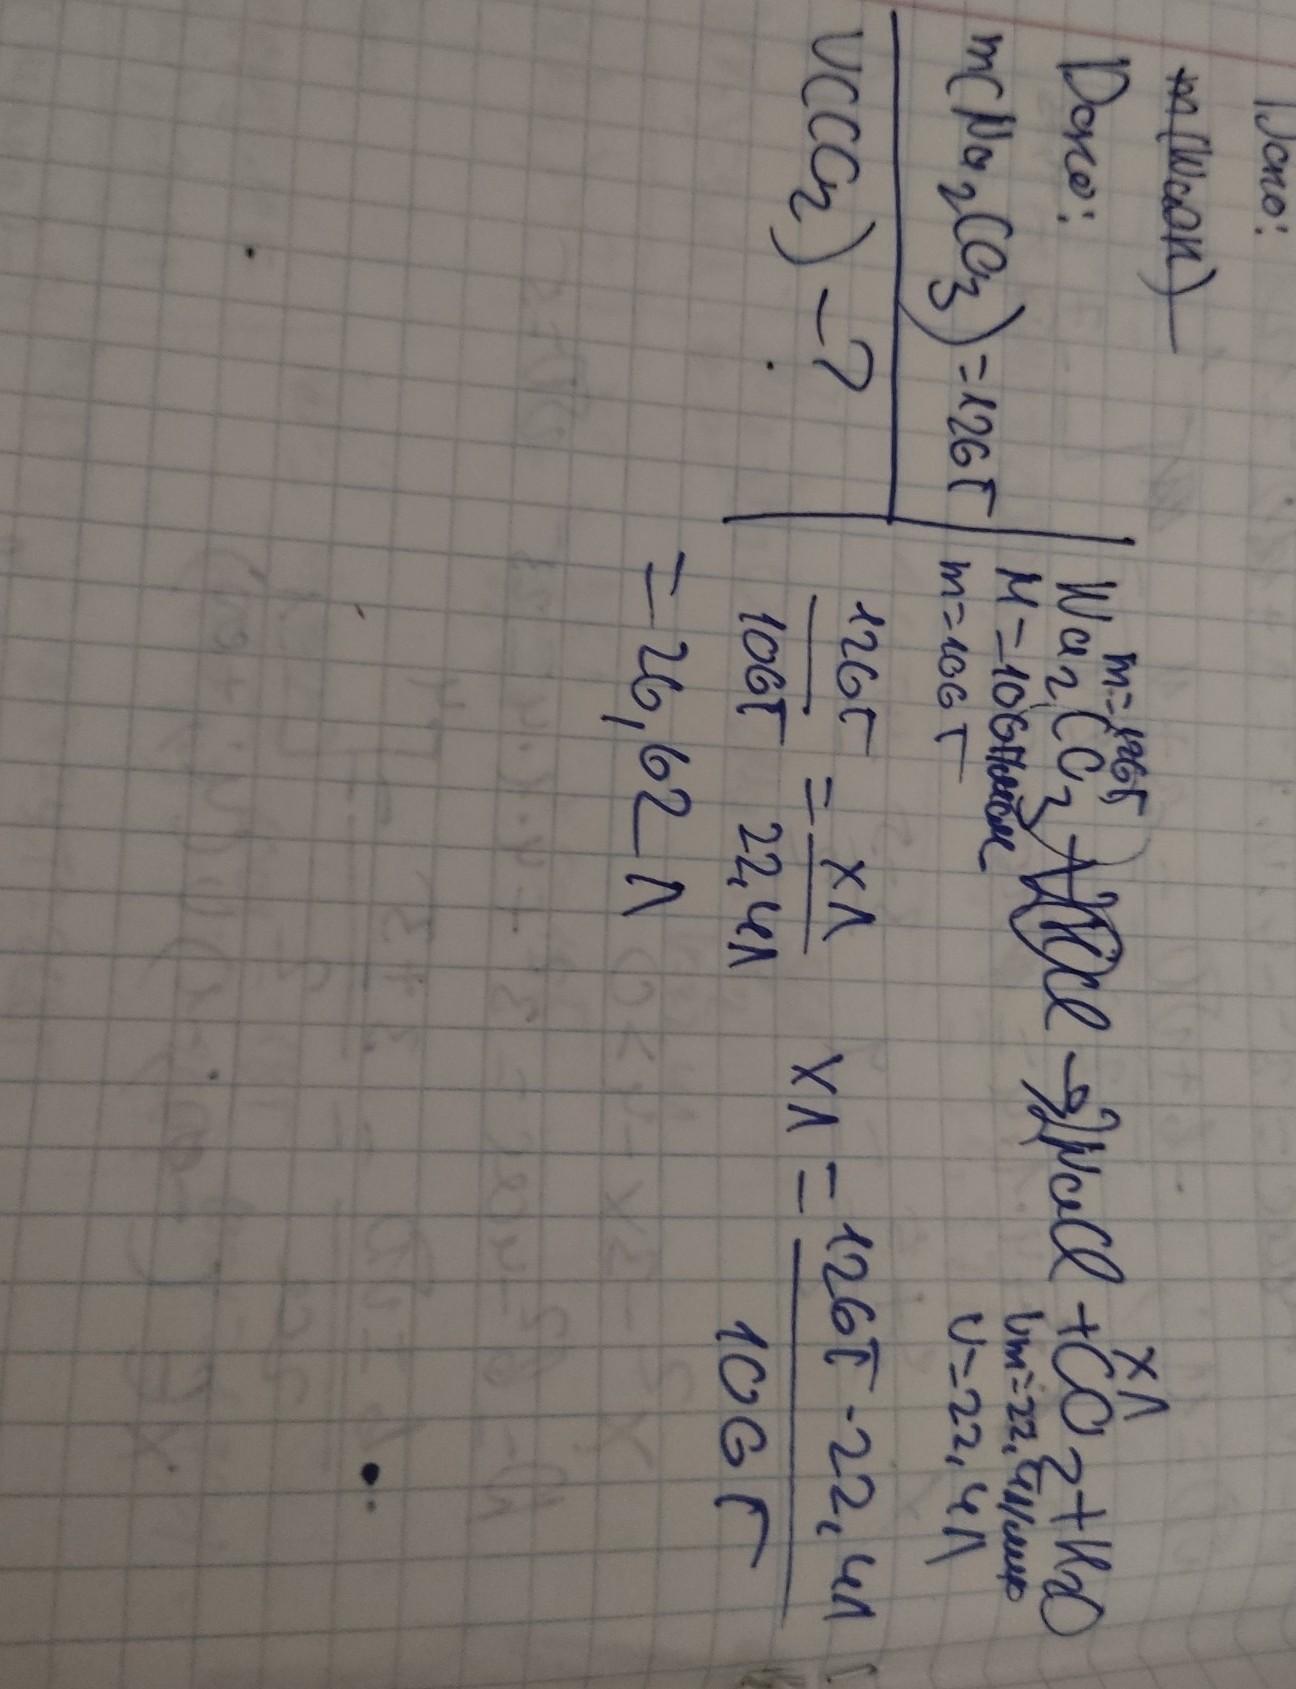 Дано:
m(NaOH)
Дано:
m(Na2CO3)=126г
V(CO2) – ?
m=126г
xл
Na2CO3+2HCl→2NaCl+CO2+H2O
M=106г/моль
Vm=22,4л/моль
m=106г
V=22,4л
126г/106г = xл/22,4л
xл = 126г·22,4л/106г
= 26,62л